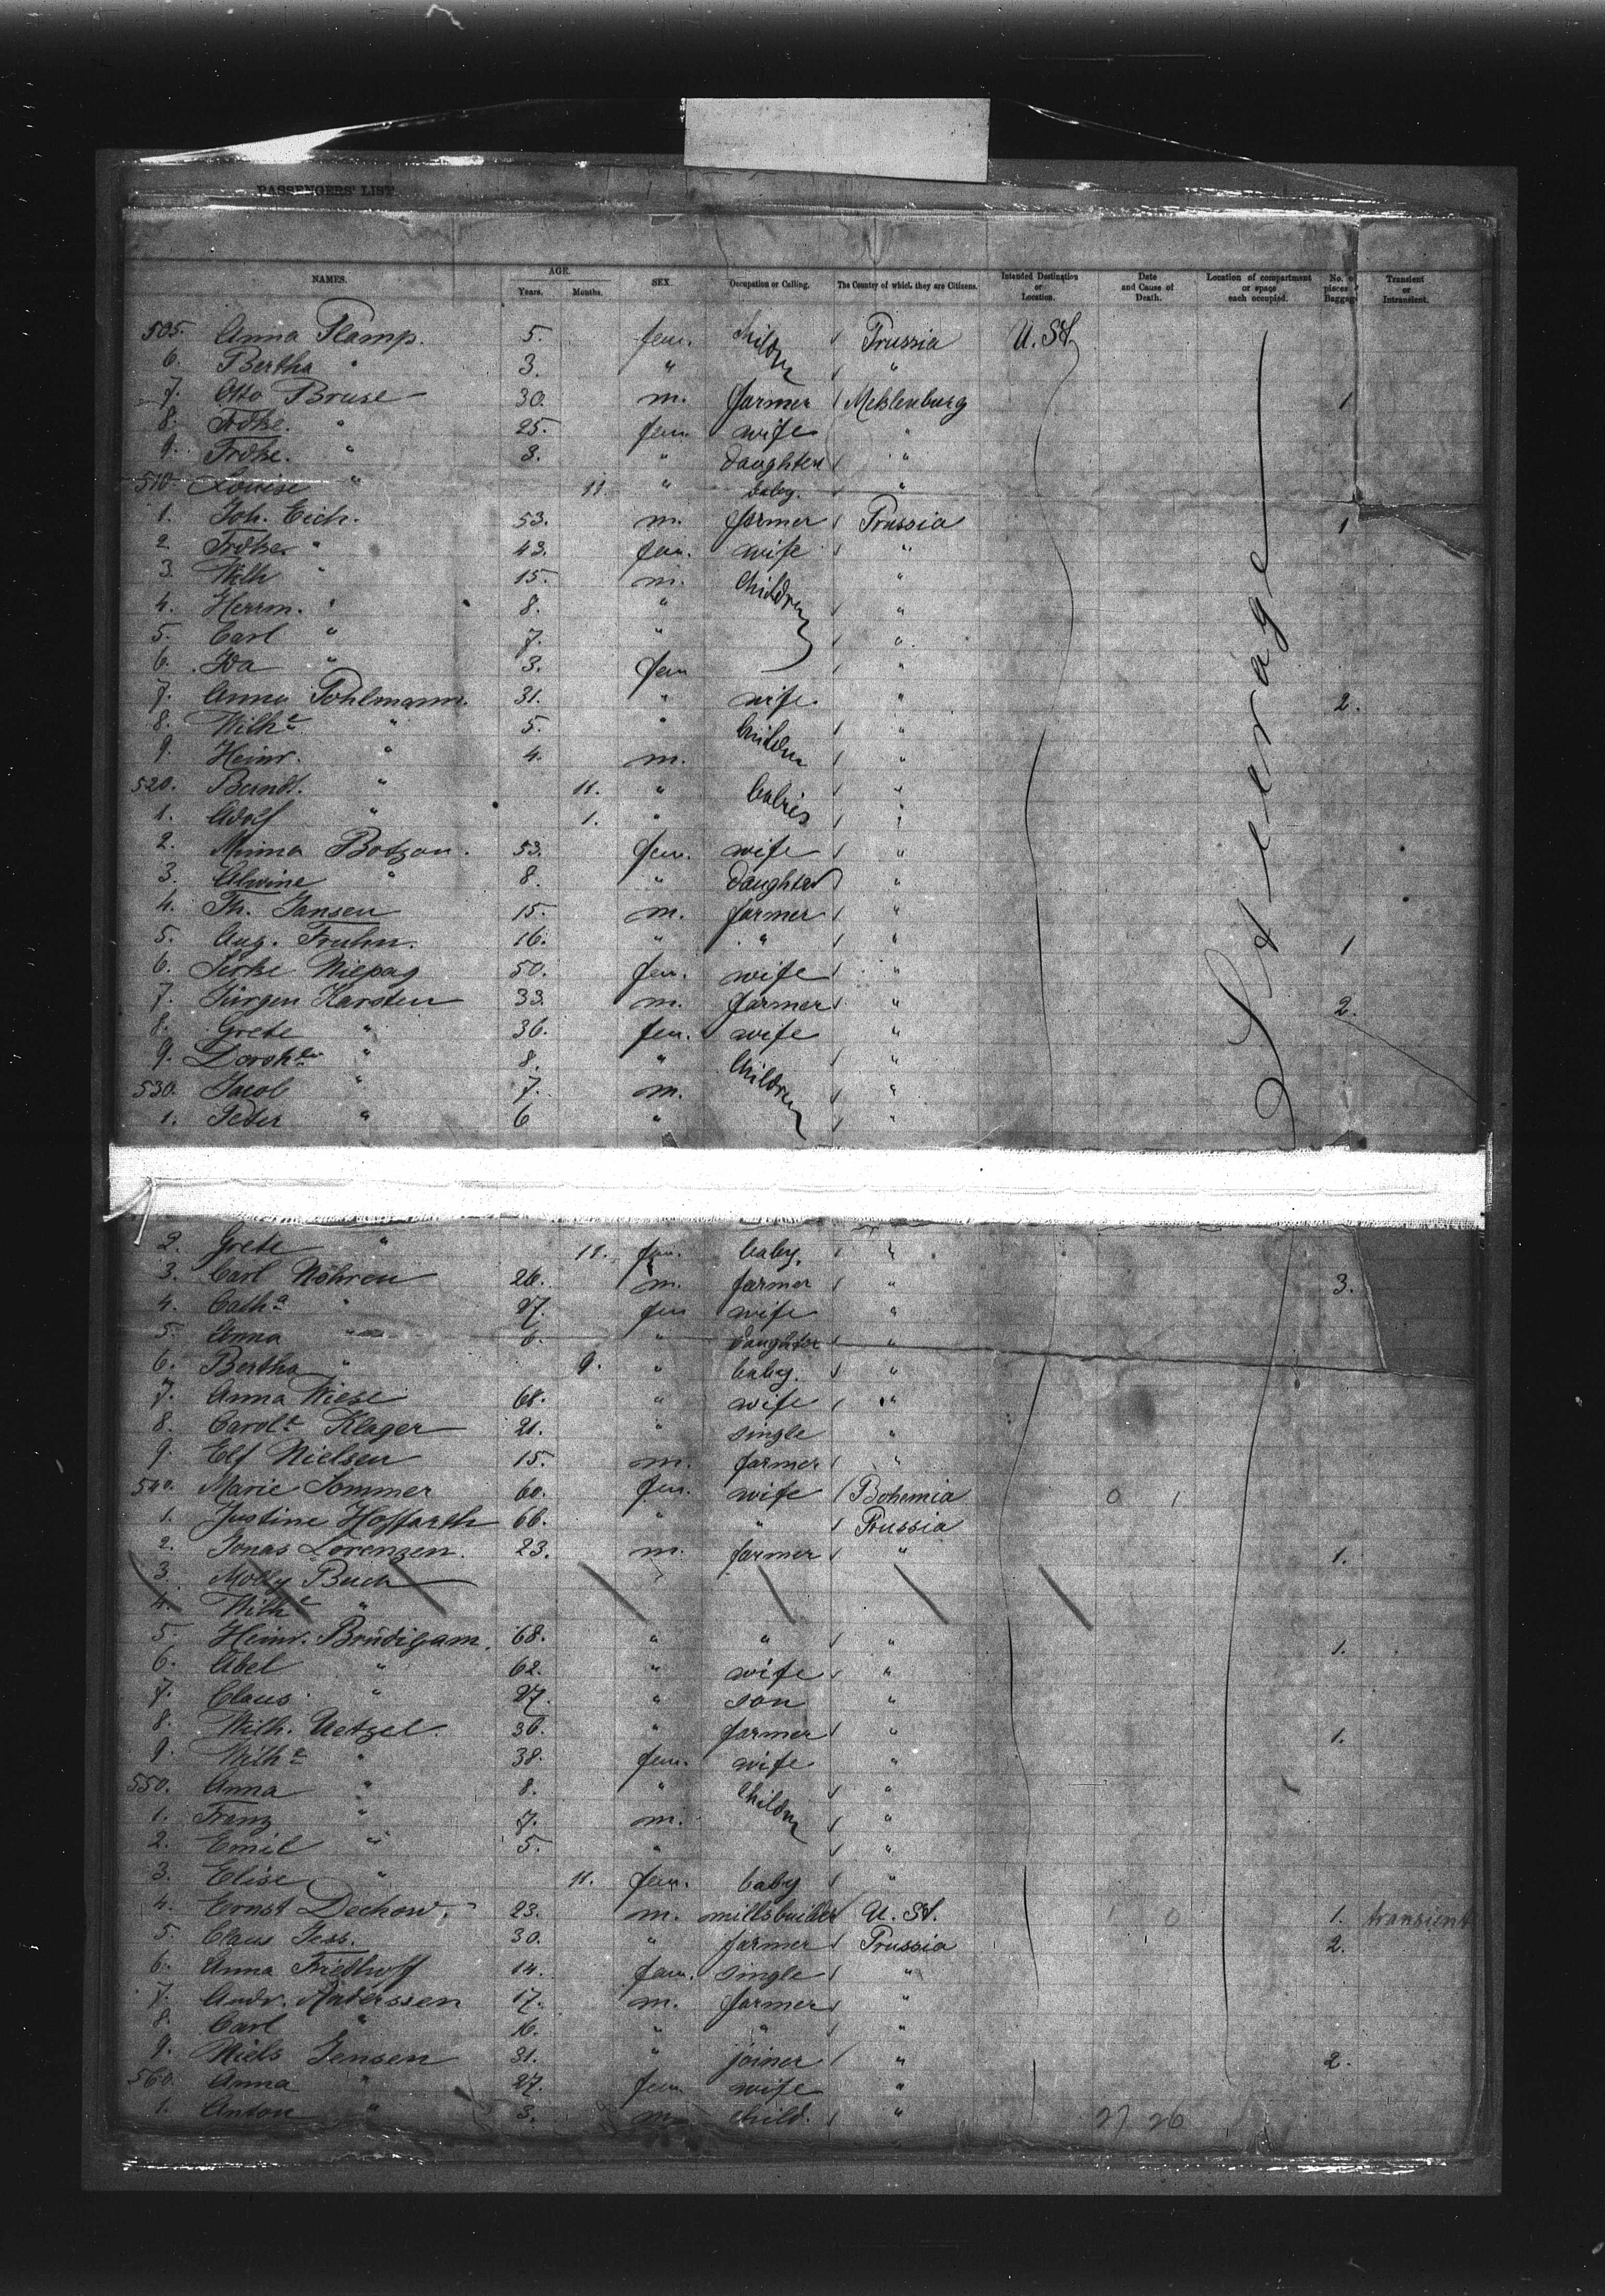 PASSENGERS' LIST.
NAMES. AGE. Years. Months. SEX. Occupation or Calling. The Country of which they are Citizens. Intended Destination or Location. Date and Cause of Death. Location of compartment or space each occupied. No. of pieces Baggage Transient or Intransient.
505. Anna Plamp. 5. fem. Childn Prussia U. St.
6. Bertha " 3. " "
7. Otto Bruse 30. m. farmer Meklenburg 1
8. Frdke. " 25. fem. wife "
9. Frdke. " 3. " daughter "
510. Louise " 11. " baby. "
1. Joh. Eich. 53. m. farmer Prussia 1
2. Frdke. " 43. fem. wife "
3. Wilh " 15. m. Children "
4. Herrm. " 8. " "
5. Carl " 7. " "
6. Ida " 3. fem "
7. Anna Pohlmann. 31. " wife " 2.
8. Wilhe " 5. " Childn "
9. Heinr. " 4. m. "
520. Berndt. " 11. " babies "
1. Adolf " 1. " "
2. Minna Botzon. 53. fem. wife "
3. Alwine " 8. " daughter "
4. Th. Jansen 15. m. farmer "
5. Aug. Fruhn. 16. " " " 1
6. Niepag 50. fem. wife "
7. Jürgen Karsten 33. m. farmer " 2.
8. Grete " 36. fem. wife "
9. Doroth " 8. " Children "
530. Jacob " 7. m. "
1. Peter " 6 " "
2. Grete " 11. fem. baby. "
3. Carl Nöhren 26. m. farmer " 3.
4. Catha " 27. fem wife "
5. Anna " 6. " daughter "
6. Bertha " 9. " baby. "
7. Anna Wiese 68. " wife "
8. Carole Klager 21. " single "
9. Elf Nielsen 15. m. farmer "
540. Marie Sommer 60. fem. wife Bohemia 0 1
1. Justine Hoffarth 66. " " Prussia
2. Jonas Lorenzen. 23. m. farmer " 1.
3. Molly Buch
4. Wilhe "
5. Heinr. Brüdigam. 68. " " " 1.
6. Abel " 62. " wife "
7. Claus " 27. " son "
8. Wilh. Uetzel. 36. " farmer " 1.
9. Wilhe " 38. fem. wife "
550. Anna " 8. " Childn "
1. Franz " 7. m. "
2. Emil " 5. " "
3. Elise " 11. fem. baby "
4. Ernst Dechow. 23. m. millsbuilder U. St. 0 1. transient
5. Claus Jess. 30. " farmer Prussia 2.
6. Anna Friedhoff 14. fem. single "
7. Andr. Anderssen 17. m. farmer "
8. Carl " 16. " " "
9. Niels Jensen 31. " joiner " 2.
560. Anna " 27. fem. wife "
1. Anton " 3. m. child. " 27 26
Steerage